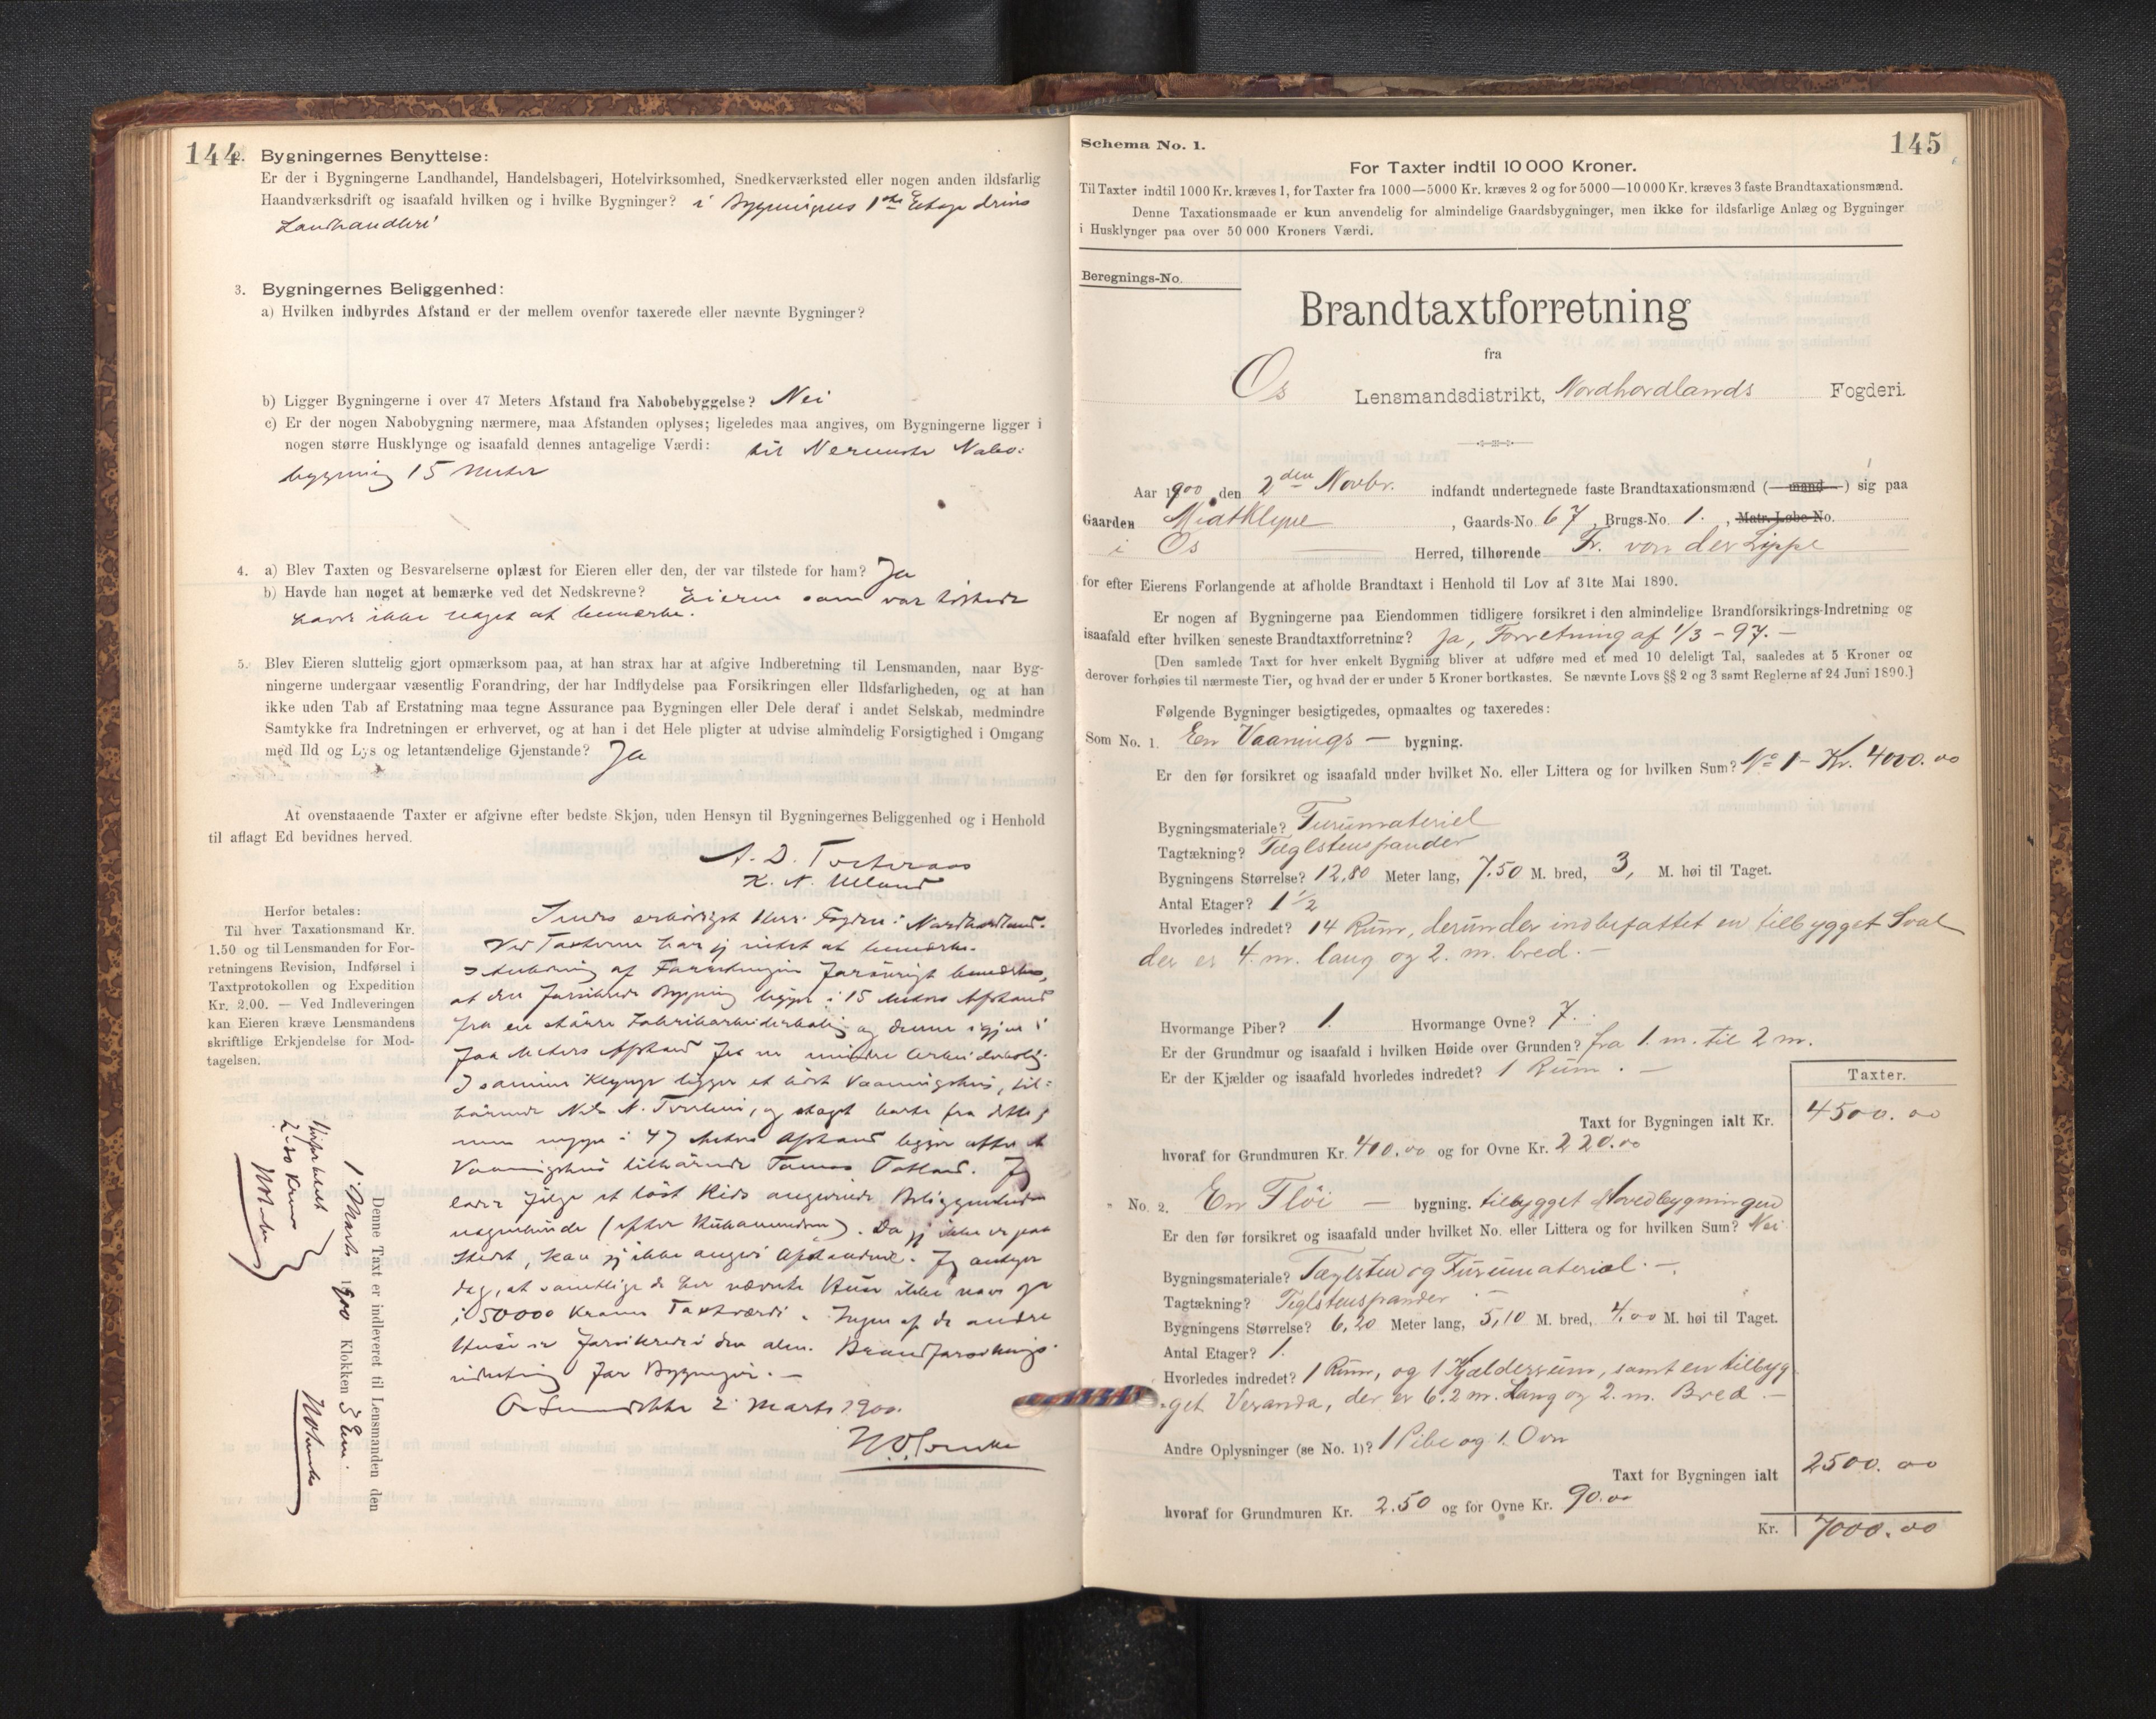 144
2. Bygningernes Benyttelse:
Er der i Bygningerne Landhandel, Handelsbageri, Hotelvirksomhed, Snedkerværksted eller nogen anden ildsfarlig
Haandværksdrift og isaafald hvilken og i hvilke Bygninger? i Bygningens 1ste Etage drives
Landhandleri
3. Bygningernes Beliggenhed:
a) Hvilken indbyrdes Afstand er der mellem ovenfor taxerede eller nævnte Bygninger?
b) Ligger Bygningerne i over 47 Meters Afstand fra Nabobebyggelse? Nei
c) Er der nogen Nabobygning nærmere, maa Afstanden oplyses; ligeledes maa angives, om Bygningerne ligger i
nogen større Husklynge og isaafald dennes antagelige Værdi: til Nermeste Nabo-
bygning 15 Meter
4. a) Blev Taxten og Besvarelserne oplæst for Eieren eller den, der var tilstede for ham? Ja
b) Havde han noget at bemærke ved det Nedskrevne? Eieren som var tilstede
havde ikke noget at bemærke.
5. Blev Eieren sluttelig gjort opmærksom paa, at han strax har at afgive Indberetning til Lensmanden, naar Byg-
ningerne undergaar væsentlig Forandring, der har Indflydelse paa Forsikringen eller Ildsfarligheden, og at han
ikke uden Tab af Erstatning maa tegne Assurance paa Bygningen eller Dele deraf i andet Selskab, medmindre
Samtykke fra Indretningen er erhvervet, og at han i det Hele pligter at udvise almindelig Forsigtighed i Omgang
med Ild og Lys og letantændelige Gjenstande? Ja
At ovenstaaende Taxter er afgivne efter bedste Skjøn, uden Hensyn til Bygningernes Beliggenhed og i Henhold
til aflagt Ed bevidnes herved.
Herfor betales:
Til hver Taxationsmand Kr.
1.50 og til Lensmanden for For-
retningens Revision, Indførsel i
Taxtprotokollen og Expedition
Kr. 2.00. — Ved Indleveringen
kan Eieren kræve Lensmandens
skriftlige Erkjendelse for Mod-
tagelsen.
Denne Taxt er indleveret til Lensmanden den
1 Marts 1900 Klokken 5 Em.
Sendes ærbødigst Herr Fogden i Nordhordland.
Ved Taxterne har jeg intet at bemærke.
at den forsikrede Bygning ligger i 15 Meters Afstand
fra en større Fabrikarbeiderbolig og denne igjen i
faa Meters Afstand fra en mindre Arbeiderbolig.
I samme Klynge ligger et lidet Vaaningshus, til-
i 47 Meters Afstand ligger atter et
Vaaningshus tilhørende
sted, kan jeg ikke angive Afstandene. Jeg antager
dog, at samtlige de her nævnte Huse ikke naar op
i 50000 Kroners Taxtværdi. Ingen af de andre
Huse er forsikrede i den alm. Brandforsikrings-
indretning for Bygninger. —
2 Marts 1900.
145
Schema No. 1.
For Taxter indtil 10 000 Kroner.
Til Taxter indtil 1000 Kr. kræves 1, for Taxter fra 1000—5000 Kr. kræves 2 og for 5000—10 000 Kr. kræves 3 faste Brandtaxationsmænd.
Denne Taxationsmaade er kun anvendelig for almindelige Gaardsbygninger, men ikke for ildsfarlige Anlæg og Bygninger
i Husklynger paa over 50 000 Kroners Værdi.
Beregnings-No.
Brandtaxtforretning
fra
Os Lensmandsdistrikt, Nordhordlands Fogderi.
Aar 1900 den 2den Novbr. indfandt undertegnede faste Brandtaxationsmænd (—mand—) sig paa
Gaarden Midtklyve, Gaards-No. 67, Brugs-No. 1., Matr. Løbe-No.
i Os Herred, tilhørende Fr. von der Lippe
for efter Eierens Forlangende at afholde Brandtaxt i Henhold til Lov af 31te Mai 1890.
Er nogen af Bygningerne paa Eiendommen tidligere forsikret i den almindelige Brandforsikrings-Indretning og
isaafald efter hvilken seneste Brandtaxtforretning? Ja, Forretning af 1/3 - 97. —
[Den samlede Taxt for hver enkelt Bygning bliver at udføre med et med 10 deleligt Tal, saaledes at 5 Kroner og
derover forhøies til nærmeste Tier, og hvad der er under 5 Kroner bortkastes. Se nævnte Lovs §§ 2 og 3 samt Reglerne af 24 Juni 1890.]
Følgende Bygninger besigtigedes, opmaaltes og taxeredes:
Som No. 1. En Vaanings — bygning.
Er den før forsikret og isaafald under hvilket No. eller Littera og for hvilken Sum? No 1 - Kr. 4000.00
Bygningsmateriale? Furumateriel
Tagtækning? Tæglstenspander
Bygningens Størrelse? 12,80 Meter lang, 7,50 M. bred, 3, M. høi til Taget.
Antal Etager? 1 1/2
Hvorledes indredet? 14 Rum, derunder indbefattet en tilbygget Sval
der er 4. m. lang og 2. m. bred. —
Hvormange Piber? 1. Hvormange Ovne? 7.
Er der Grundmur og isaafald i hvilken Høide over Grunden? fra 1. m. til 2 m.
Er der Kjælder og isaafald hvorledes indredet? 1 Rum. —
Taxter.
Taxt for Bygningen ialt Kr. 4500.00
hvoraf for Grundmuren Kr. 400.00 og for Ovne Kr. 220.00
" No. 2. En Fløi — bygning. tilbygget Hovedbygningen
Er den før forsikret og isaafald under hvilket No. eller Littera og for hvilken Sum? Nei
Bygningsmateriale? Tæglsten og Furumaterial. —
Tagtækning? Teglstenspander
Bygningens Størrelse? 6,20 Meter lang, 5,10 M. bred, 4,00 M. høi til Taget.
Antal Etager? 1.
Hvorledes indredet? 1 Rum, og 1 Kjælderrum, samt en tilbyg-
get Veranda, der er 6.2 m. Lang og 2. m. Bred —
Andre Oplysninger (se No. 1)? 1 Pibe og 1. Ovn
Taxt for Bygningen ialt 2500.00
hvoraf for Grundmuren Kr. 2.50 og for Ovne Kr. 90.00
Kr. 7000.00